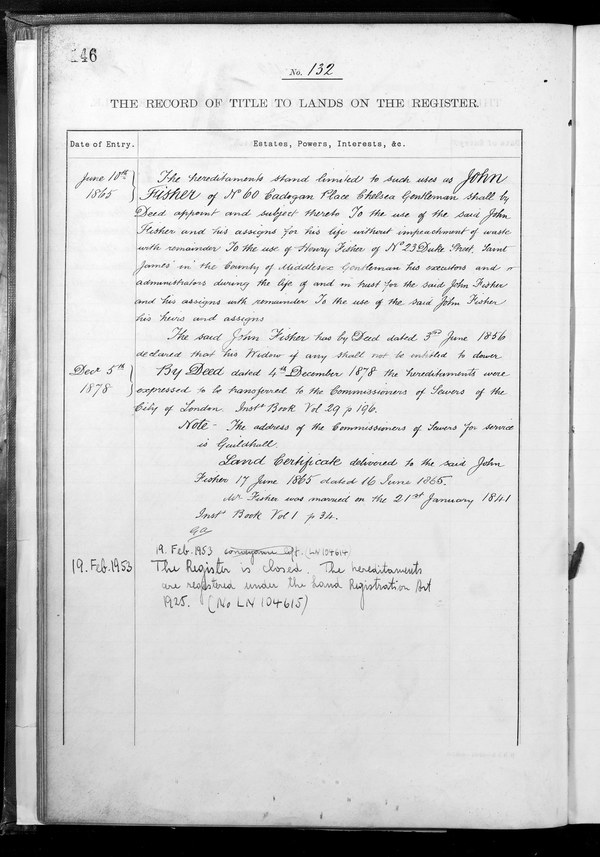 146
No. 132
THE RECORD OF TITLE TO LANDS ON THE REGISTER.
Date of Entry. Estates, Powers, Interests, &c.
June 10th 1865
The hereditaments stand limited to such uses as John
Fisher of No 60 Cadogan Place Chelsea Gentleman shall by
Deed appoint and subject thereto To the use of the said John
Fisher and his assigns for his life without impeachment of waste
with remainder To the use of Henry Fisher of No 23 Duke Street, Saint
James' in the County of Middlesex Gentleman his executors and
administrators during the life of and in trust for the said John Fisher
and his assigns with remainder To the use of the said John Fisher
his heirs and assigns
The said John Fisher has by Deed dated 3rd June 1856
declared that his Widow if any shall not be entitled to dower
Decr 5th 1878
By Deed dated 4th December 1878 the hereditaments were
expressed to be transferred to the Commissioners of Sewers of the
City of London. Inst Book Vol 29 p 196.
Note - The address of the Commissioners of Sewers for service
is Guildhall.
Land Certificate delivered to the said John
Fisher 17 June 1865 dated 16 June 1865.
Mr Fisher was married on the 21st January 1841
Inst Book Vol 1 p 34.
19. Feb. 1953 (LN 104614)
19. Feb. 1953 The Register is closed. The hereditaments
are registered under the Land Registration Act
1925. (No LN 104615)